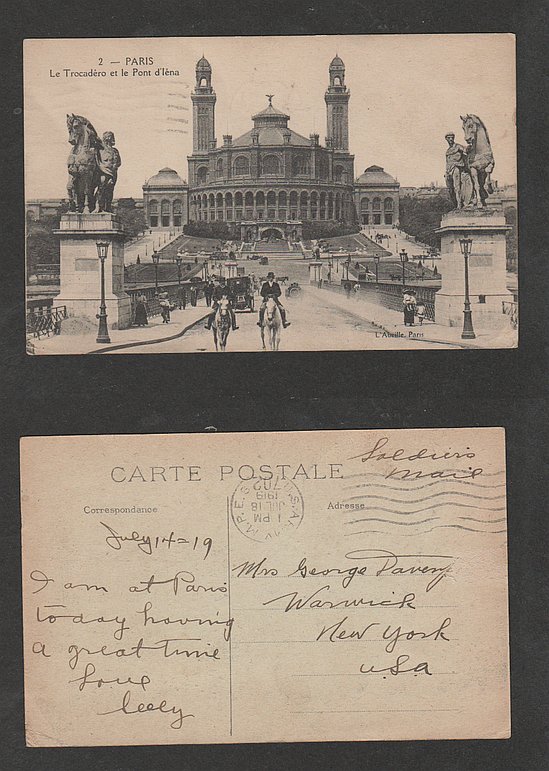 2 — PARIS
Le Trocadéro et le Pont d'Iéna
L'Abeille, Paris
Soldiers
Mail
CARTE POSTALE
Correspondance
Adresse
1 PM
JUL 18
1919
702
July 14-19
I am at Paris
today having
a great time
Love
Mrs George Davey
Warwick
New York
U.S.A